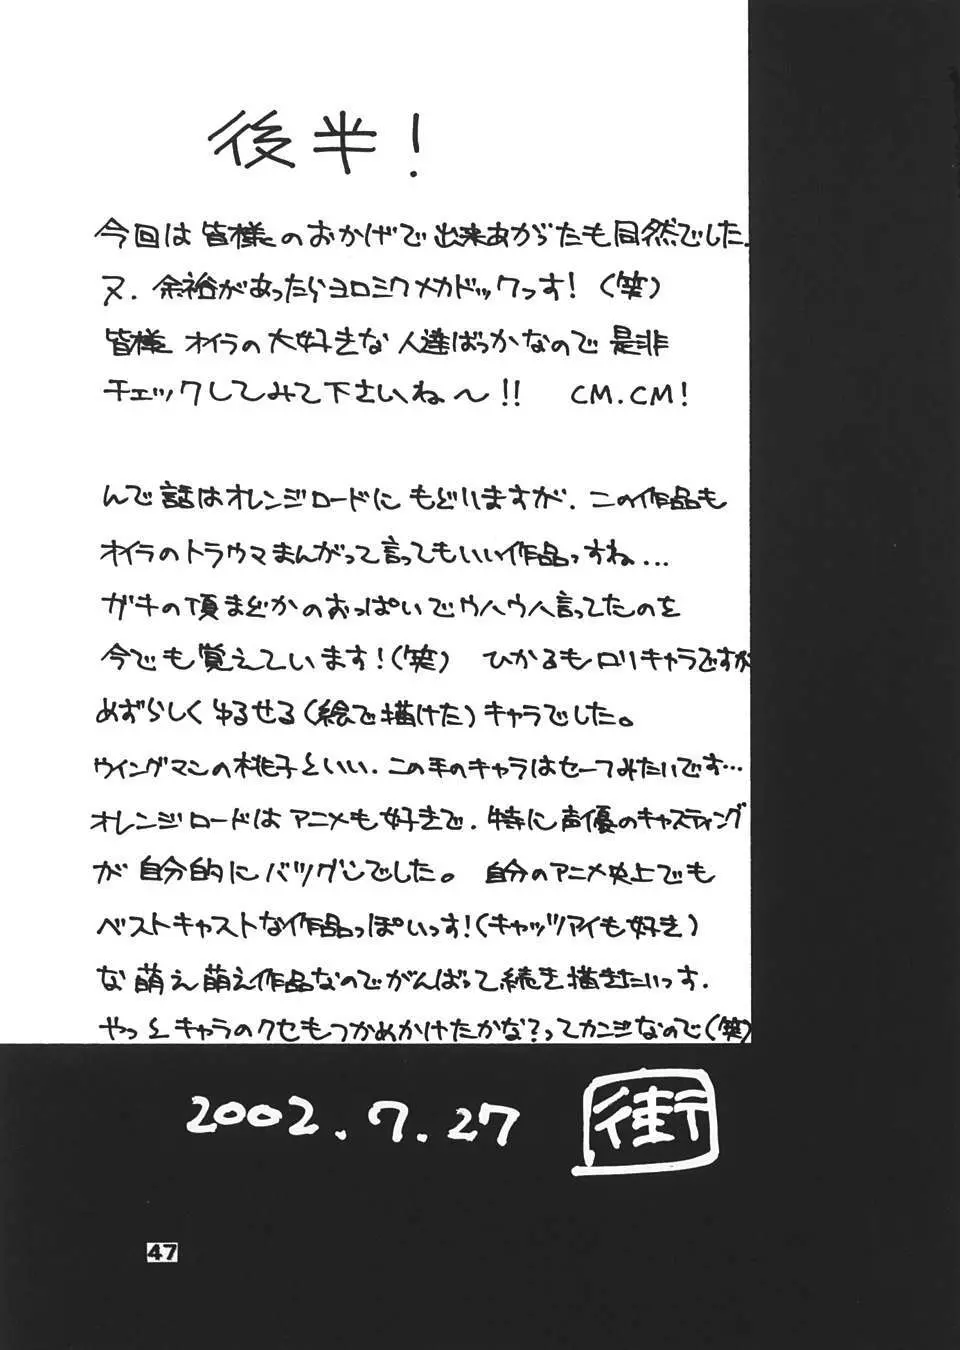 後半!
今回は皆様のおかげで出来あがったも同然でした.
又.余裕があったらヨロシクメカドックっす!(笑)
皆様オイラの大好きな人達ばっかなので是非
チェックしてみて下さいね〜!! CM.CM!
んで話はオレンジロードにもどいますが.この作品も
オイラのトラウマまんがって言ってもいい作品っすね...
ガキの頃まどかのおっぱいでウハウハ言ってたのを
今でも覚えています!(笑) ひかるもロリキャラですが
めずらしくゆるせる(絵で描けた)キャラでした。
ウイングマンの桃子といい.この手のキャラはセーフみたいです…
オレンジロードはアニメも好きで.特に声優のキャスティング
が自分的にバツグンでした。 自分のアニメ史上でも
ベストキャストな作品っぽいっす!(キャッツアイも好き)
な萌え萌え作品なのでがんばって続き描きたいっす.
やっとキャラのクセもつかめかけたかな?ってカンジなので(笑)
2002.7.27 街
47